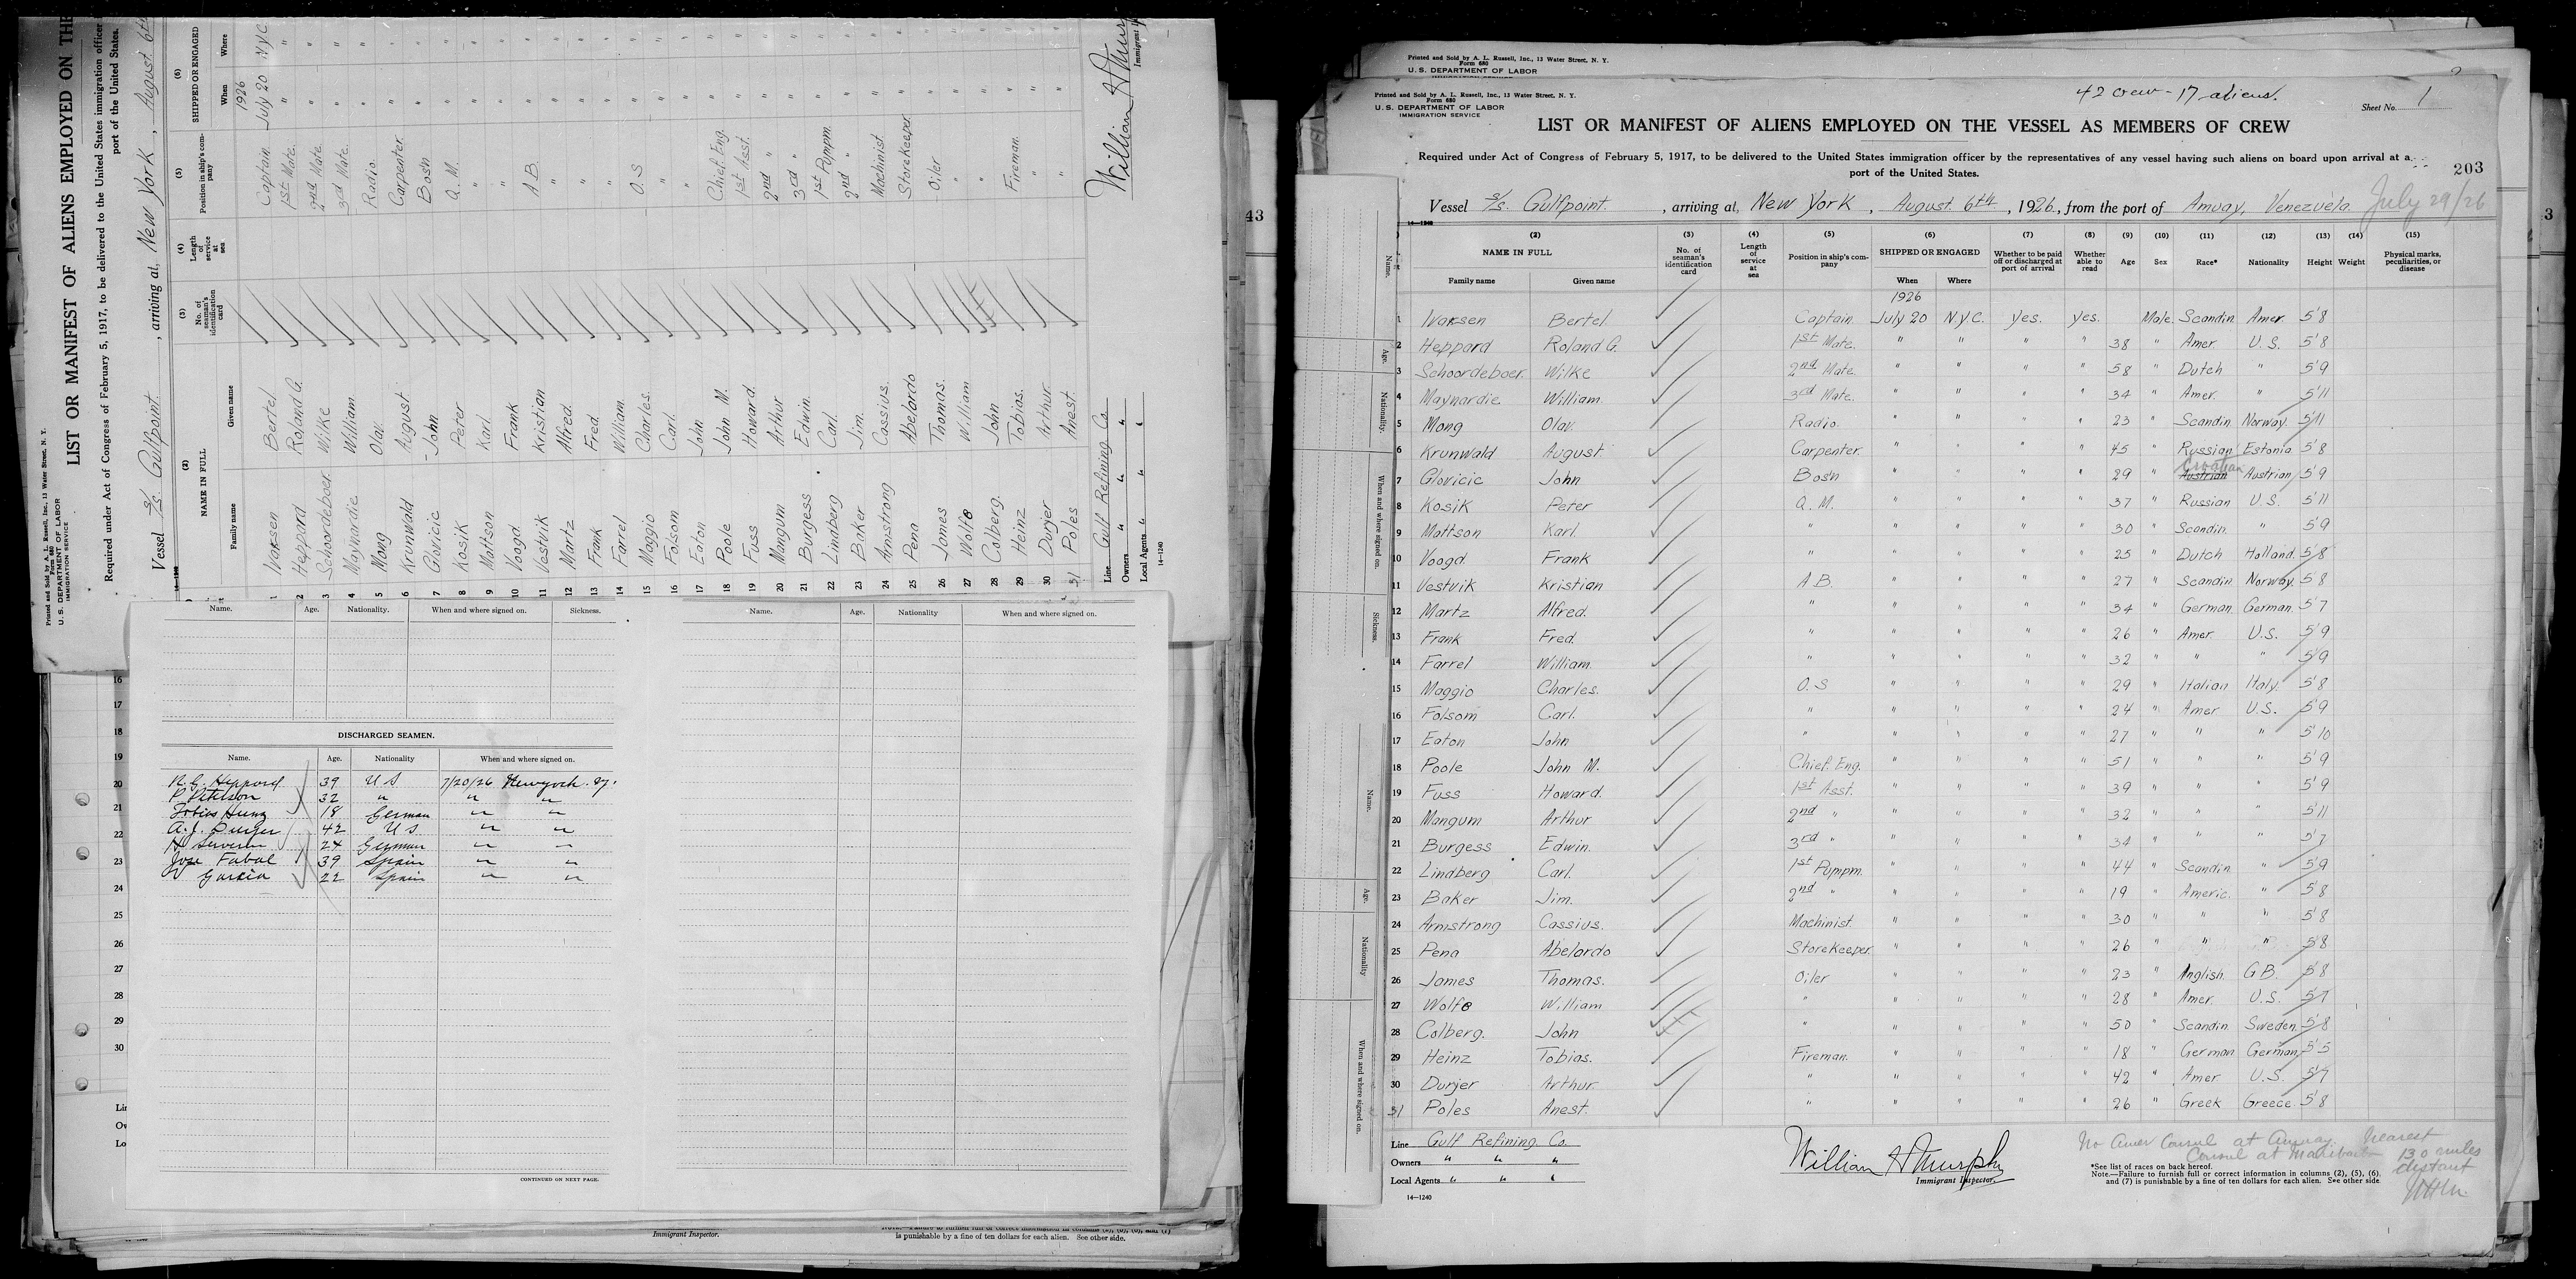 Printed and Sold by A. L. Russell, Inc., 13 Water Street, N. Y.
Form 680
U. S. DEPARTMENT OF LABOR
IMMIGRATION SERVICE
LIST OR MANIFEST OF ALIENS EMPLOYED ON THE
Required under Act of Congress of February 5, 1917, to be delivered to the United States immigration officer
port of the United States.
Vessel S/S. Gulfpoint. , arriving at, New York , August 6th
(2) (3) (4) (5) (6)
NAME IN FULL No. of seaman's identification card Length of service at sea Position in ship's company SHIPPED OR ENGAGED
Family name Given name When Where
1926
1 Ivarsen Bertel Captain July 20 N.Y.C.
2 Heppard Roland G. 1st Mate. " "
3 Schoordeboer Wilke 2nd Mate " "
4 Maynardie William 3rd Mate. " "
5 Mong Olav. Radio. " "
6 Krunwald August Carpenter " "
7 Glovicic John Bosn " "
8 Kosik Peter Q. M. " "
9 Mattson Karl " " "
10 Voogd. Frank " " "
11 Vestvik Kristian A B. " "
12 Martz Alfred. " " "
13 Frank Fred. " " "
14 Farrel William. " " "
15 Maggio Charles. O. S " "
16 Folsom Carl. " " "
17 Eaton John " " "
18 Poole John M. Chief. Eng. " "
19 Fuss Howard. 1st Asst. " "
20 Mangum Arthur 2nd " " "
21 Burgess Edwin. 3rd " " "
22 Lindberg Carl. 1st Pumpm. " "
23 Baker Jim. 2nd " " "
24 Armstrong Cassius. Machinist. " "
25 Pena Abelardo Storekeeper. " "
26 James Thomas. Oiler " "
27 Wolfe William " " "
28 Colberg. John " " "
29 Heinz Tobias. Fireman. " "
30 Durjer Arthur. " " "
31 Poles Anest. " " "
Line Gulf Refining Co.
Owners " " "
Local Agents " " "
14—1240
43
Name. Age. Nationality. When and where signed on. Sickness.
Name. Age. Nationality When and where signed on.
DISCHARGED SEAMEN.
Name. Age. Nationality When and where signed on.
R. G. Heppard 39 U S 7/20/26 Newyork. ny.
P. Peterson 32 " " "
Tobias Heinz 18 German " "
A. J. Durjer 42 U S " "
24 German " "
Jose Fabal 39 Spain " "
Garcia 22 Spain " "
CONTINUED ON NEXT PAGE.
16
17
18
19
20
21
22
23
24
25
26
27
28
29
30
Immigrant Inspector.
is punishable by a fine of ten dollars for each alien. See other side.
Printed and Sold by A. L. Russell, Inc., 13 Water Street, N. Y.
Form 680
U. S. DEPARTMENT OF LABOR
Printed and Sold by A. L. Russell, Inc., 13 Water Street, N. Y.
Form 680
U. S. DEPARTMENT OF LABOR
IMMIGRATION SERVICE
42 crew - 17 aliens.
Sheet No. 1
LIST OR MANIFEST OF ALIENS EMPLOYED ON THE VESSEL AS MEMBERS OF CREW
Required under Act of Congress of February 5, 1917, to be delivered to the United States immigration officer by the representatives of any vessel having such aliens on board upon arrival at a
port of the United States.
203
Vessel S/S. Gulfpoint. , arriving at, New York , August. 6th , 1926, from the port of Amuay, Venezuela July 29/26
14—1240
(2) (3) (4) (5) (6) (7) (8) (9) (10) (11) (12) (13) (14) (15)
NAME IN FULL No. of seaman's identification card Length of service at sea Position in ship's company SHIPPED OR ENGAGED Whether to be paid off or discharged at port of arrival Whether able to read Age Sex Race* Nationality Height Weight Physical marks, peculiarities, or disease
Family name Given name When Where
1926
1 Ivarsen Bertel Captain July 20 N.Y.C. yes. yes. Male. Scandin Amer. 5'8
2 Heppard Roland G. 1st Mate. " " " " 38 " Amer. U. S. 5'8
3 Schoordeboer. Wilke 2nd Mate. " " " " 58 " Dutch " 5'9
4 Maynardie William 3rd Mate. " " " " 34 " Amer. " 5'11
5 Mong Olav. Radio. " " " " 23 " Scandin Norway. 5'11
6 Krunwald August Carpenter. " " " " 45 " Russian Estonia. 5'8
7 Glovicic John Bosn " " " " 29 " Austrian Croatian Austrian 5'9
8 Kosik Peter Q. M. " " " " 37 " Russian U. S. 5'11
9 Mattson Karl. " " " " " 30 " Scandin. " 5'9
10 Voogd. Frank " " " " " 25 " Dutch Holland. 5'8
11 Vestvik Kristian A B. " " " " 27 " Scandin Norway. 5'8
12 Martz Alfred. " " " " " 34 " German German. 5'7
13 Frank Fred. " " " " " 26 " Amer. U. S. 5'9
14 Farrel William. " " " " " 32 " " " 5'9
15 Maggio Charles. O. S " " " " 29 " Italian Italy. 5'8
16 Folsom Carl. " " " " " 24 " Amer. U. S. 5'9
17 Eaton John " " " " " 27 " " " 5'10
18 Poole John M. Chief. Eng. " " " " 51 " " " 5'9
19 Fuss Howard. 1st Asst. " " " " 39 " " " 5'9
20 Mangum Arthur 2nd " " " " " 32 " " " 5'11
21 Burgess Edwin. 3rd " " " " " 34 " " " 5'7
22 Lindberg Carl. 1st Pumpm. " " " " 44 " Scandin. " 5'9
23 Baker Jim. 2nd " " " " " 19 " Americ. " 5'8
24 Armstrong Cassius. Machinist. " " " " 30 " " " 5'8
25 Pena Abelardo Storekeeper. " " " " 26 " " " 5'8
26 James Thomas. Oiler " " " " 23 " Inglish. G B. 5'8
27 Wolfe William " " " " " 28 " Amer. U. S. 5'7
28 Colberg. John " " " " " 50 " Scandin. Sweden. 5'8
29 Heinz Tobias. Fireman. " " " " 18 " German German 5'5
30 Durjer Arthur. " " " " " 42 " Amer. U. S. 5'7
31 Poles Anest. " " " " " 26 " Greek Greece. 5'8
Line Gulf Refining Co.
Owners " " "
Local Agents " " "
14—1240
William H Murphy
Immigrant Inspector.
No Amer Consul at Amuay. Nearest
Consul at Maracaibo 130 miles
distant
*See list of races on back hereof.
Note.—Failure to furnish full or correct information in columns (2), (5), (6),
and (7) is punishable by a fine of ten dollars for each alien. See other side
Name. Age. Nationality. When and where signed on. Sickness.
Name. Age. Nationality When and where signed on.